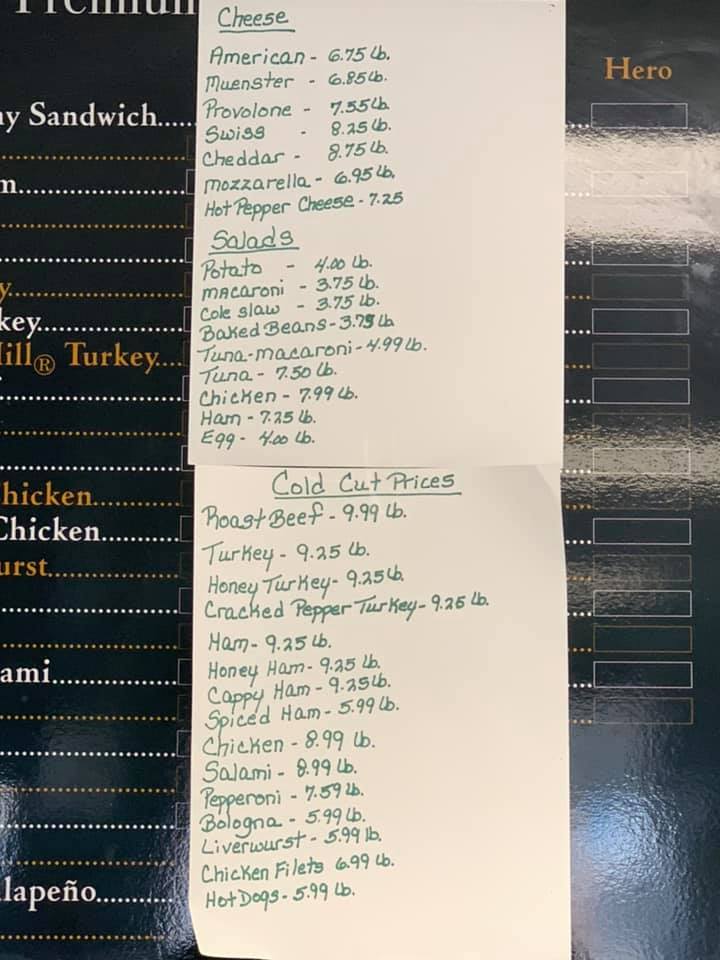 Premium
Cheese
American - 6.75 lb.
Muenster - 6.85 lb.
Provolone - 7.55 lb.
Swiss - 8.25 lb.
Cheddar - 8.75 lb.
Mozzarella - 6.95 lb.
Hot Pepper Cheese - 7.25
Salads
Potato - 4.00 lb.
Macaroni - 3.75 lb.
Cole slaw - 3.75 lb.
Baked Beans - 3.75 lb
Tuna-macaroni - 4.99 lb.
Tuna - 7.50 lb.
Chicken - 7.99 lb.
Ham - 7.25 lb.
Egg - 4.00 lb.
Cold Cut Prices
Roast Beef - 9.99 lb.
Turkey - 9.25 lb.
Honey Turkey - 9.25 lb.
Cracked Pepper Turkey - 9.25 lb.
Ham - 9.25 lb.
Honey Ham - 9.25 lb.
Cappy Ham - 9.25 lb.
Spiced Ham - 5.99 lb.
Chicken - 8.99 lb.
Salami - 8.99 lb.
Pepperoni - 7.59 lb.
Bologna - 5.99 lb.
Liverwurst - 5.99 lb.
Chicken Filets 6.99 lb.
Hot Dogs - 5.99 lb.
Hero
ny Sandwich.....
m
y
key
ill® Turkey....
hicken
Chicken
urst
ami
lapeño